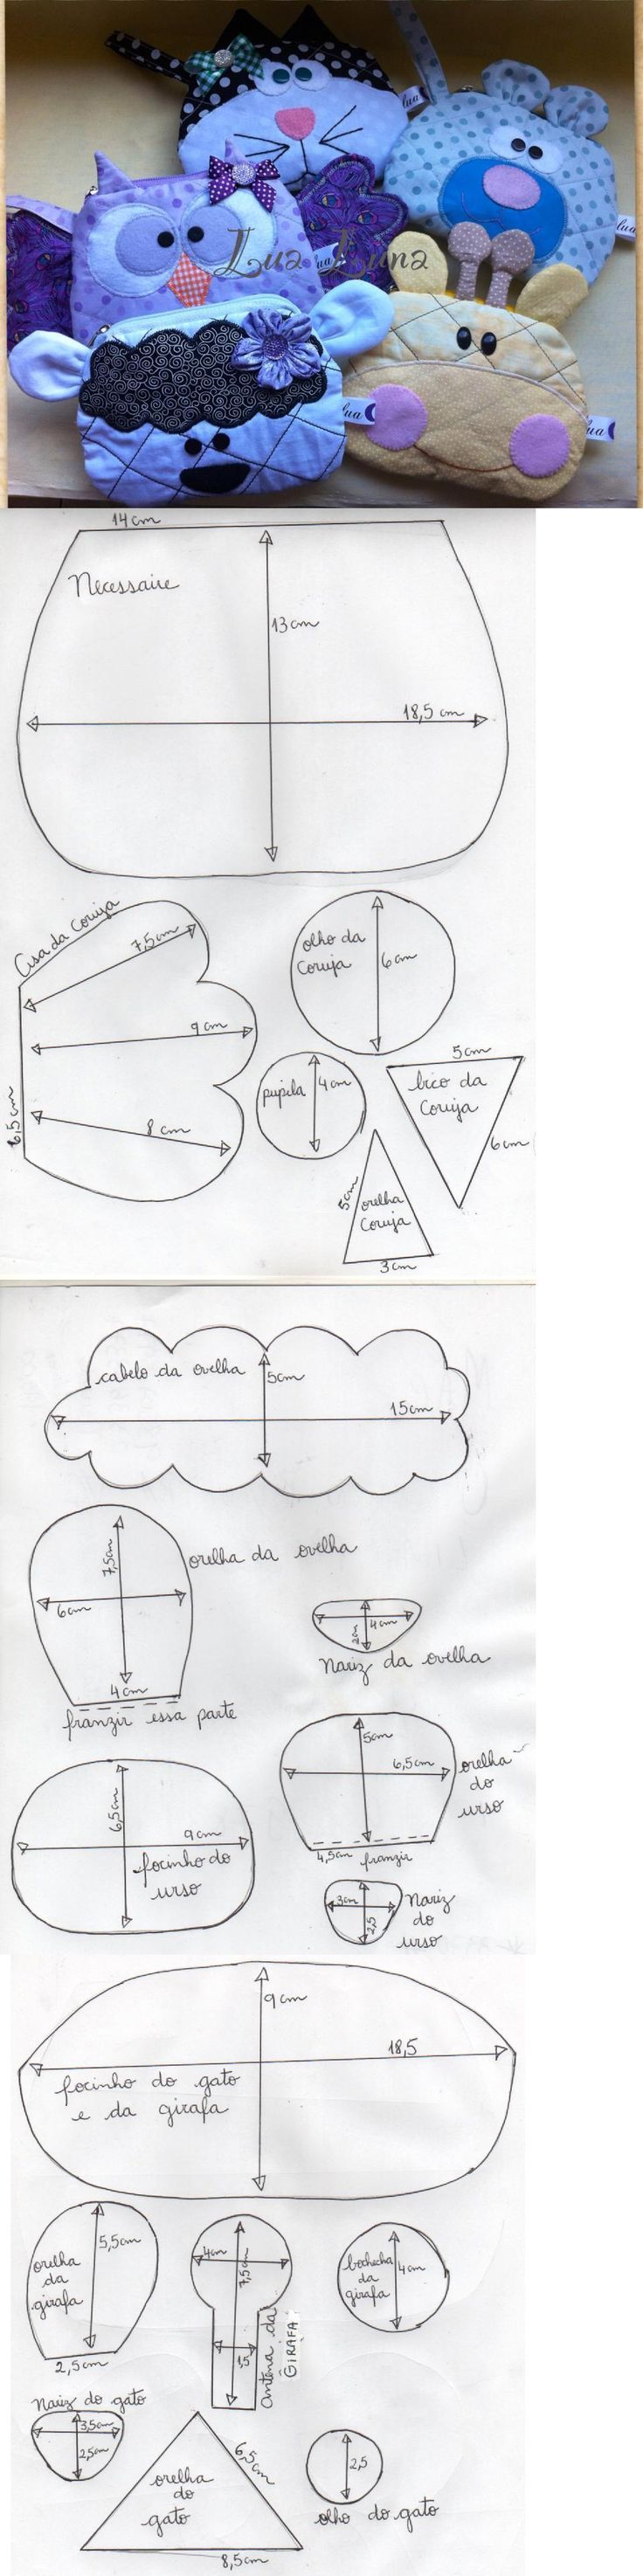 lua
lua
Lua Luna
lua
lua
lua
14cm
Necessaire
13cm
18,5 cm
Asa da Coruja
7,5cm
9 cm
6,5cm
8 cm
olho da
Coruja
6cm
pupila
4cm
5cm
bico da
Coruja
6cm
5cm
orelha
Coruja
3cm
cabelo da ovelha
5cm
15cm
7,5cm
orelha da ovelha
6cm
4cm
franzir essa parte
2cm
4cm
Nariz da ovelha
5cm
6,5cm
orelha
do
urso
4,5cm
franzir
6,5cm
9cm
focinho do
urso
3cm
2,5
Nariz
do
urso
9cm
18,5
focinho do gato
e da girafa
5,5cm
orelha
da
girafa
2,5cm
4cm
7,5cm
1,5
antena da
GIRAFA
bochecha
da
girafa
4cm
Nariz do gato
3,5cm
2,5cm
6,5cm
orelha
do
gato
8,5cm
2,5
olho do gato